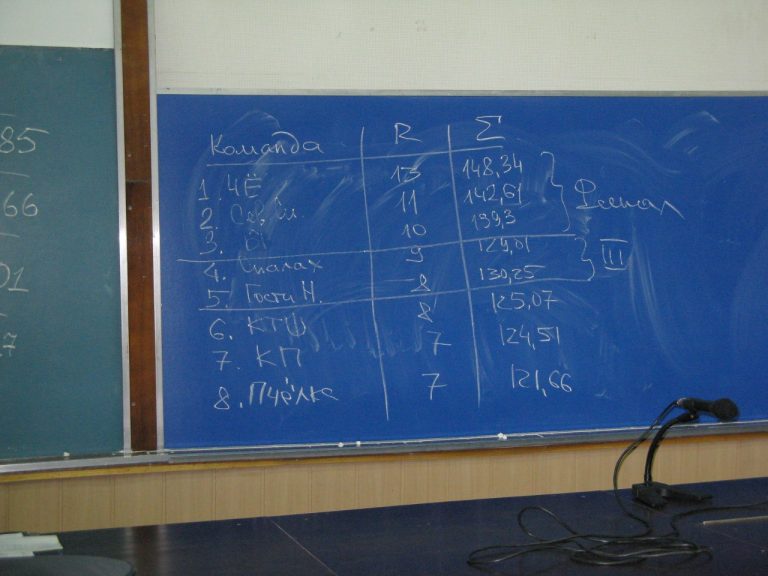 85
66
01
7
Команда R Σ
1. ЧЁ 13 148,34
2. 11 142,61 Финал
3. 10 139,3
4. Спалах 9 129,01 III
5. Гости Н. 8 130,25
6. КТШ 8 125,07
7. КП 7 124,51
8. Пчёлка 7 121,66